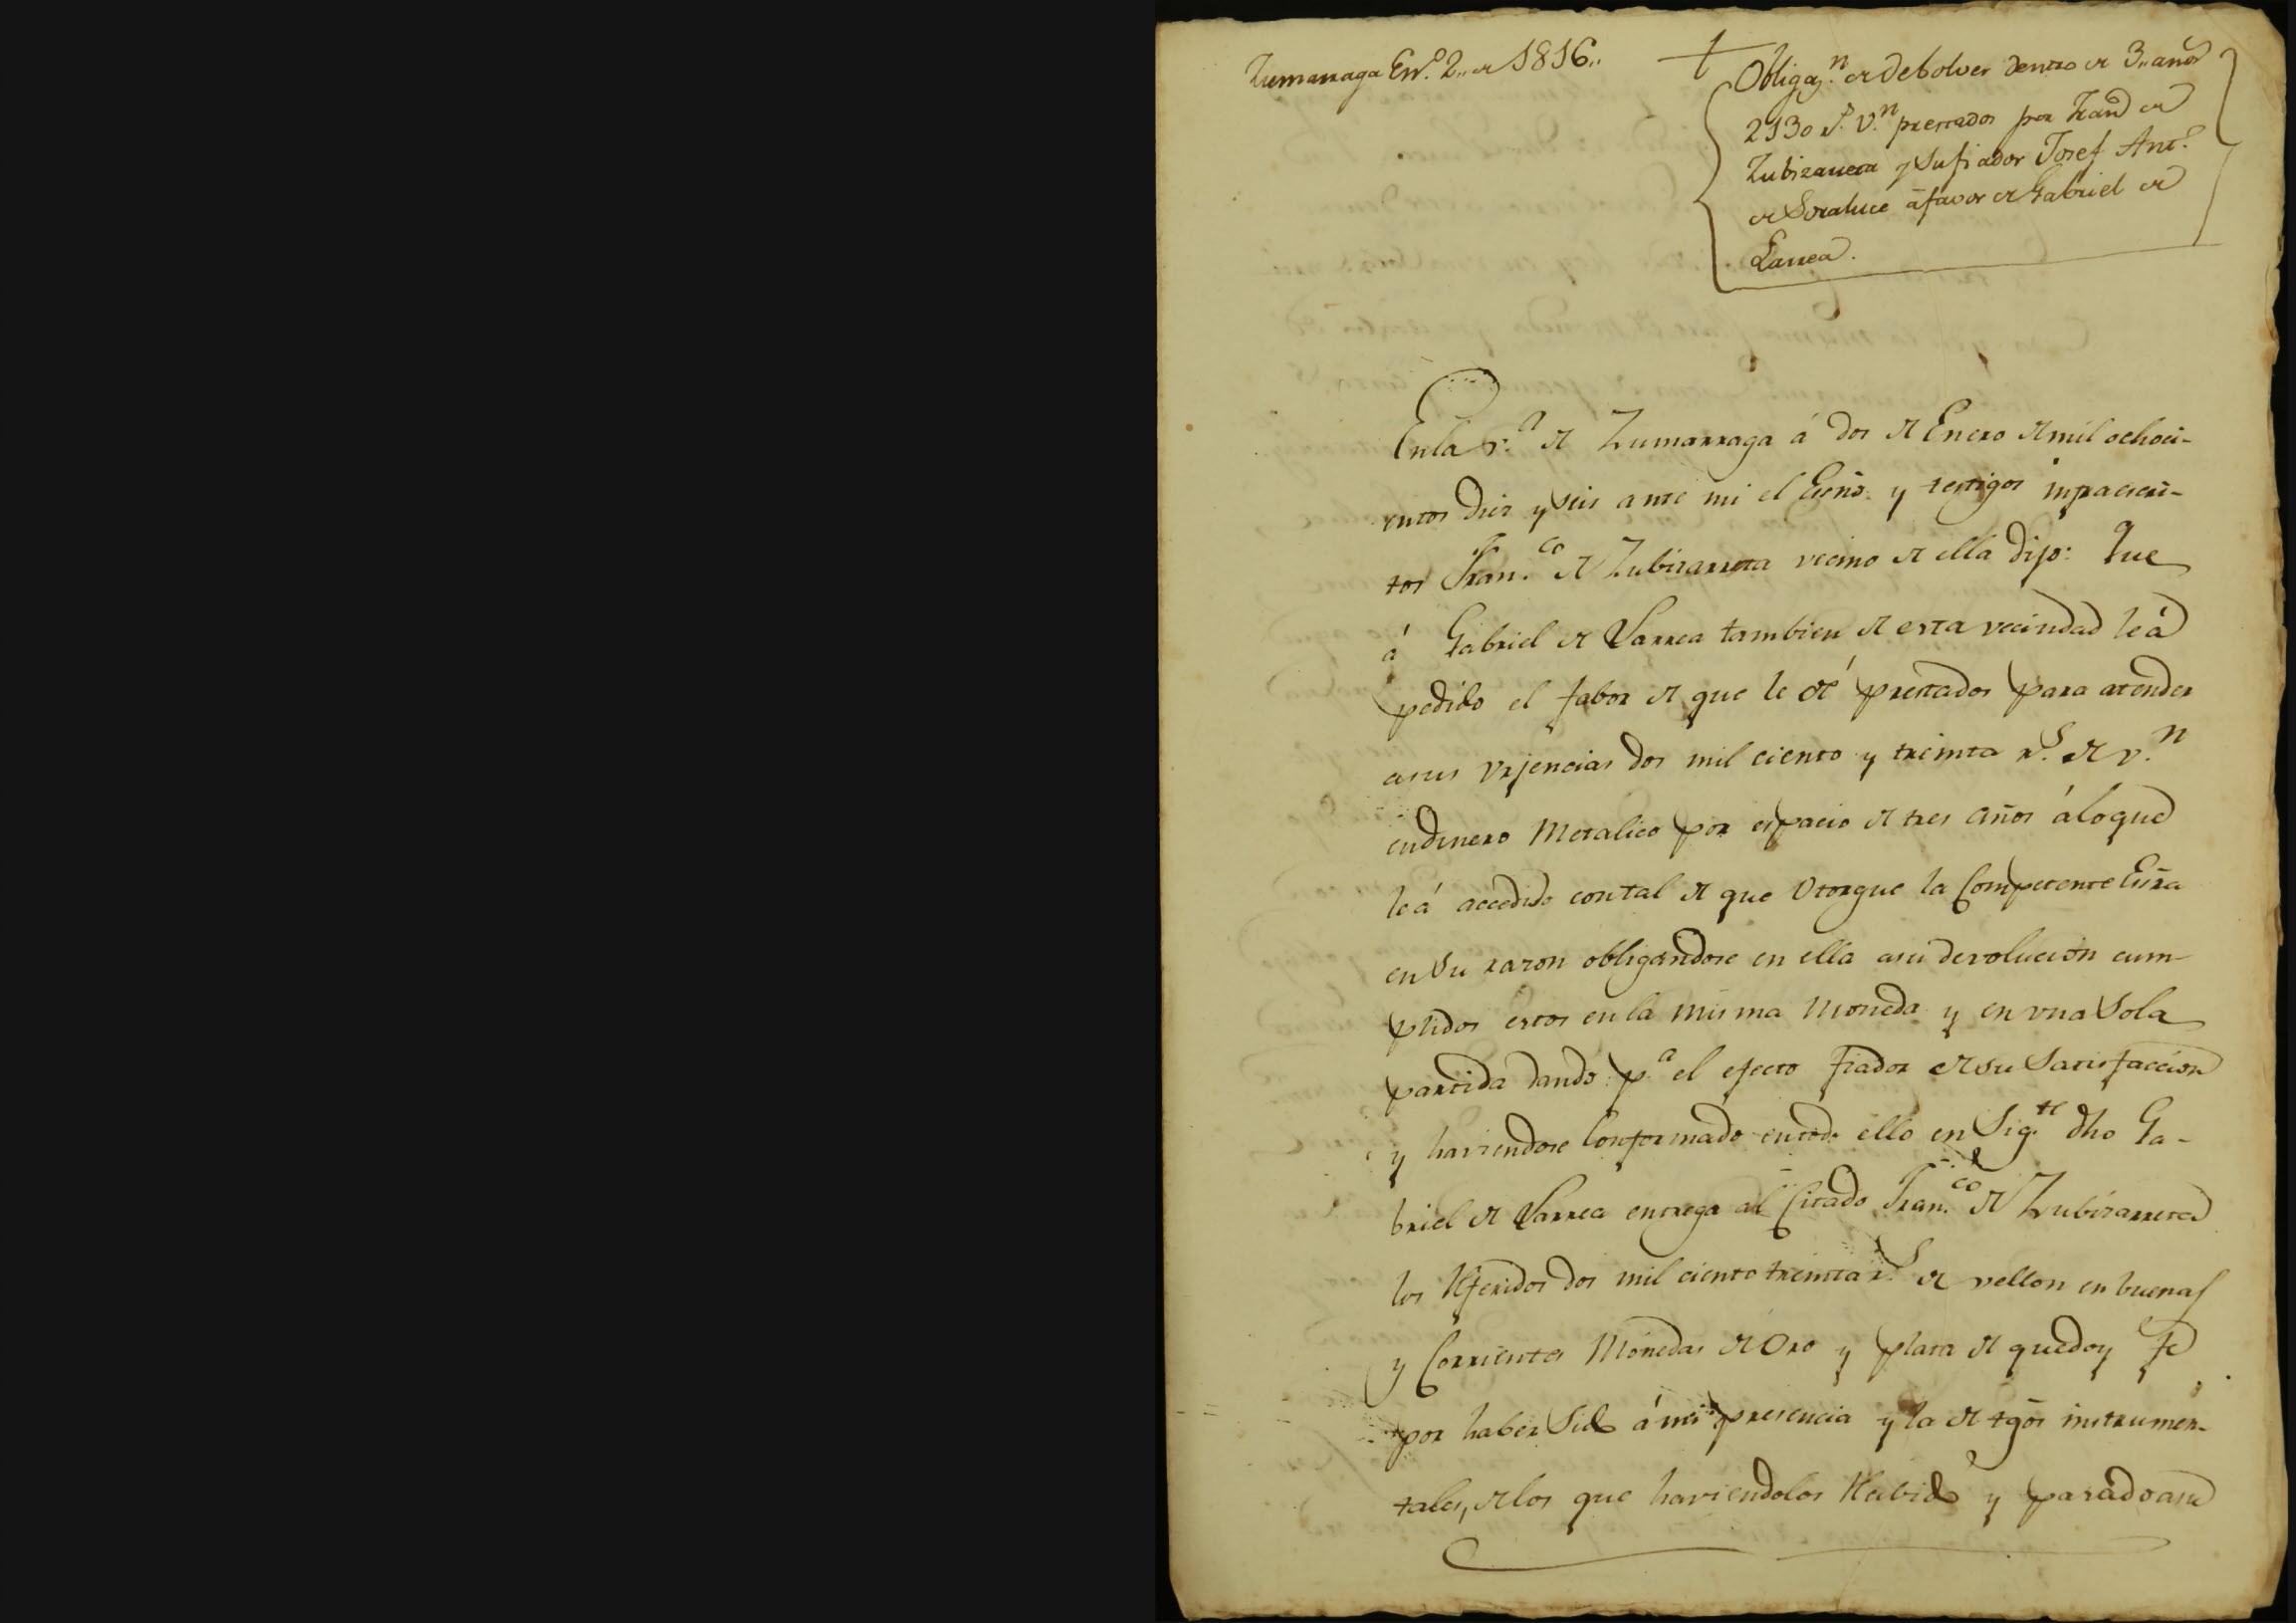 Zumarraga En.º 2,, de 1816,,
Obligaz.n de debolver dentro de 3,, años
2130 r.s v.n prestados por Fran.co de
Zubizarreta y su fiador Josef Ant.º
de Soraluce á favor de Gabriel de
Larrea.
En la v.a de Zumarraga á dos de Enero de mil ochoci-
entos diez y seis ante mi el Esño. y testigos infraescri-
tos Fran.co de Zubizarreta vecino de ella dijo: Que
á Gabriel de Larrea tambien de esta vecindad le á
pedido el fabor de que le dé prestados para atender
a sus urjencias dos mil ciento y treinta r.s de v.n
en dinero Metalico por espacio de tres años á lo que
le á accedido con tal de que otorgue la Competente Esñra
en su razon obligandose en ella a su devolucion cum-
plidos estos en la misma Moneda y en una sola
partida dando p.a el efecto fiador de su Satisfaccion
y haviendose Conformado en todo ello en Sig.te dho Ga-
briel de Larrea entrega al Citado Fran.co de Zubizarreta
los Referidos dos mil ciento treinta r.s de vellon en buenas
y Corrientes Monedas de Oro y plata de que doy fe
por haber sido á mi presencia y la de tgos instrumen-
tales, de los que haviendolos Recivido y pasado a su